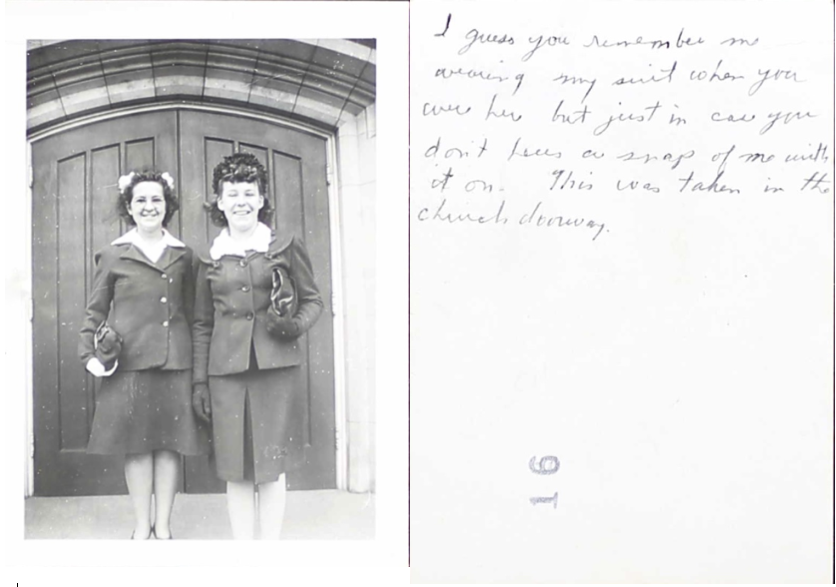 I guess you remember me
wearing my suit when you
were here but just in case you
don't have a snap of me with
it on. This was taken in the
church doorway.
16